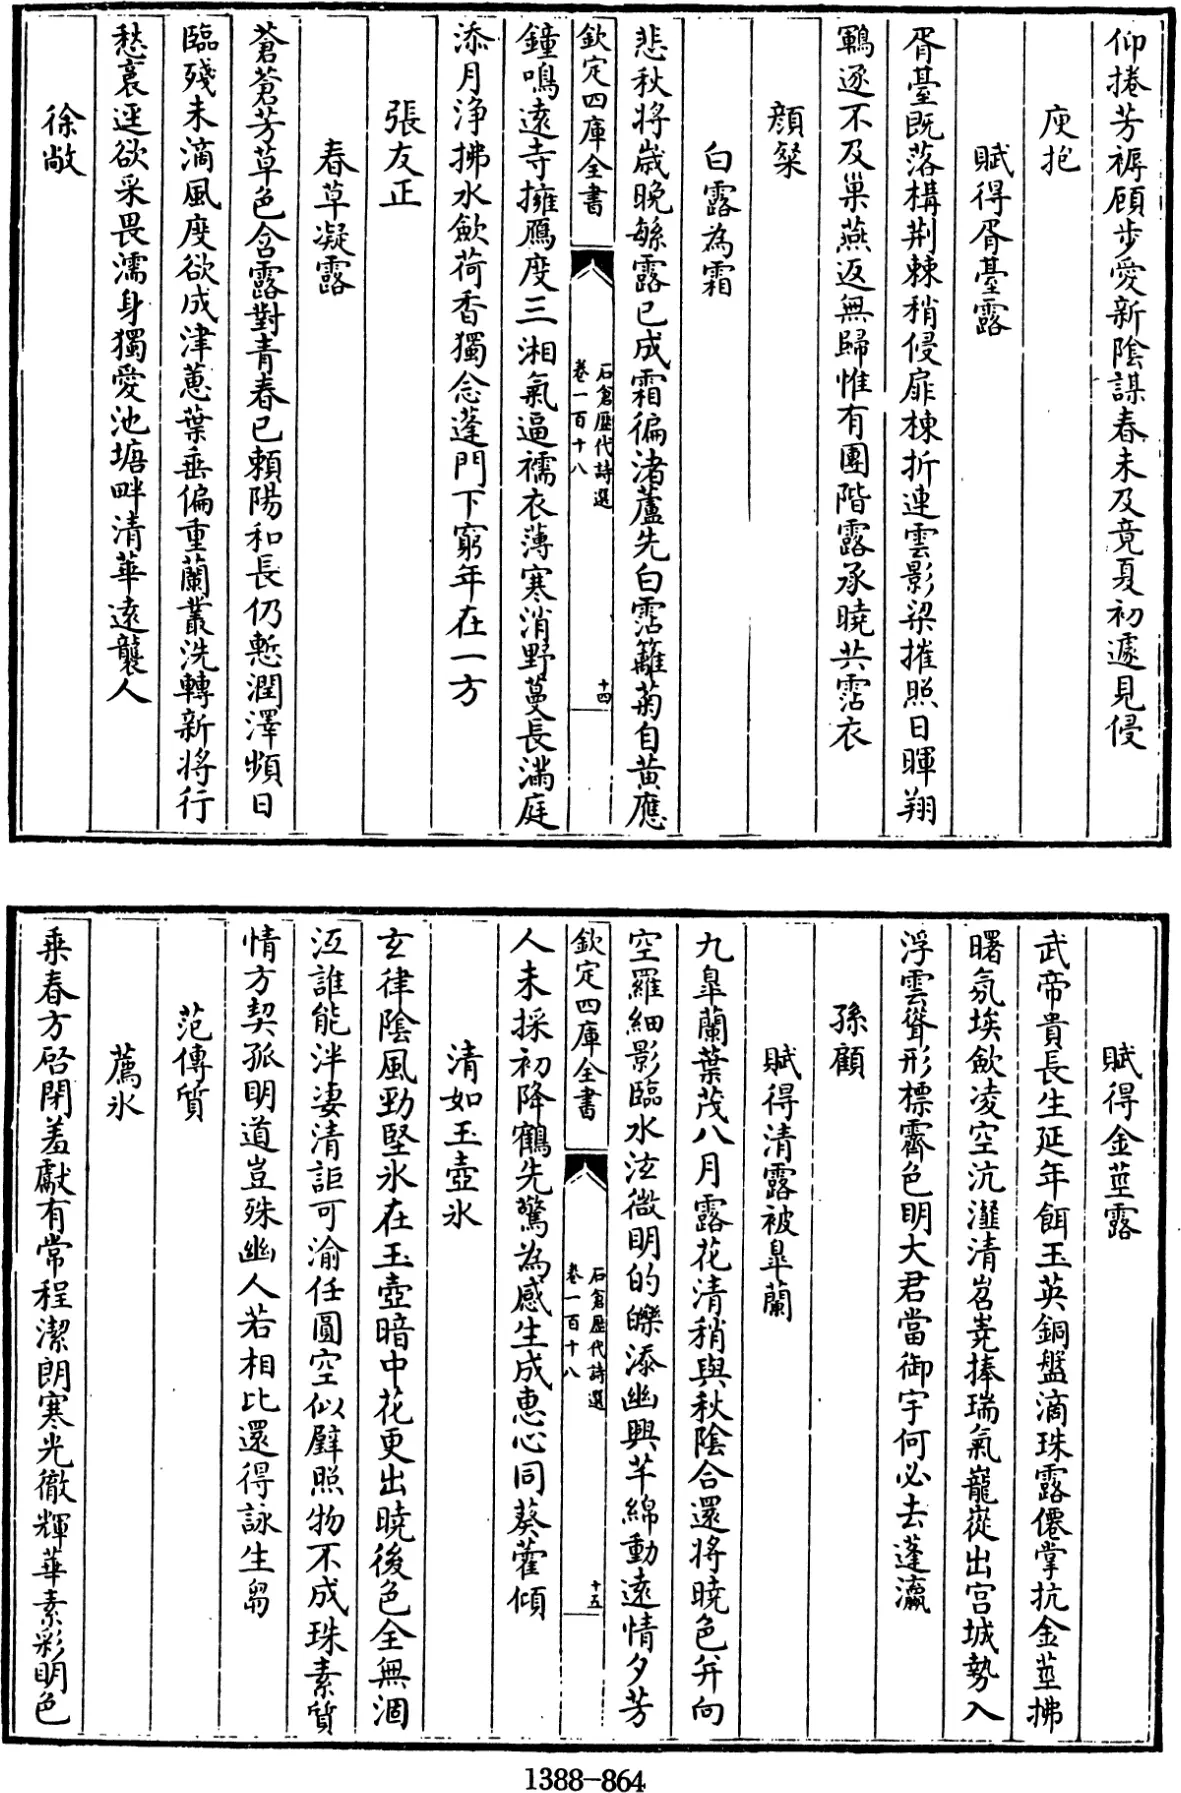 仰捲芳褥顧步愛新陰謀春未及竟夏初遽見侵
庾抱
賦得胥臺露
胥臺既落構荆棘稍侵扉棟折連雲影梁摧照日暉翔
鵾逐不及巢燕返無歸惟有團階露承曉共霑衣
顔粲
白露為霜
悲秋將歲晚繁露已成霜徧渚蘆先白霑籬菊自黄應
欽定四庫全書
石倉歷代詩選
卷一百十八
十四
鐘鳴遠寺擁鴈度三湘氣逼襦衣薄寒消野蔓長滿庭
添月浄拂水歛荷香獨念蓬門下窮年在一方
張友正
春草凝露
蒼蒼芳草色含露對青春已賴陽和長仍慙潤澤頻日
臨殘未滴風度欲成津蕙葉垂偏重蘭叢洗轉新將行
愁裛逕欲采畏濡身獨愛池塘畔清華遠襲人
徐敞
賦得金莖露
武帝貴長生延年餌玉英銅盤滴珠露僊掌抗金莖拂
曙氛埃歛凌空沆瀣清岧嶤捧瑞氣巃嵸出宫城勢入
浮雲聳形標霽色明大君當御宇何必去蓬瀛
孫顧
賦得清露被臯蘭
九臯蘭葉茂八月露花清稍與秋陰合還將曉色并向
空羅細影臨水泫微明的皪添幽興芊綿動遠情夕芳
欽定四庫全書
石倉歷代詩選
卷一百十八
十五
人未採初降鶴先驚為感生成惠心同葵藿傾
清如玉壺氷
玄律陰風勁堅氷在玉壺暗中花更出曉後色全無涸
沍誰能泮凄清詎可渝任圓空似璧照物不成珠素質
情方契孤明道豈殊幽人若相比還得詠生芻
范傳質
薦氷
乘春方啓閉羞獻有常程潔朗寒光徹輝華素彩明色
1388-864